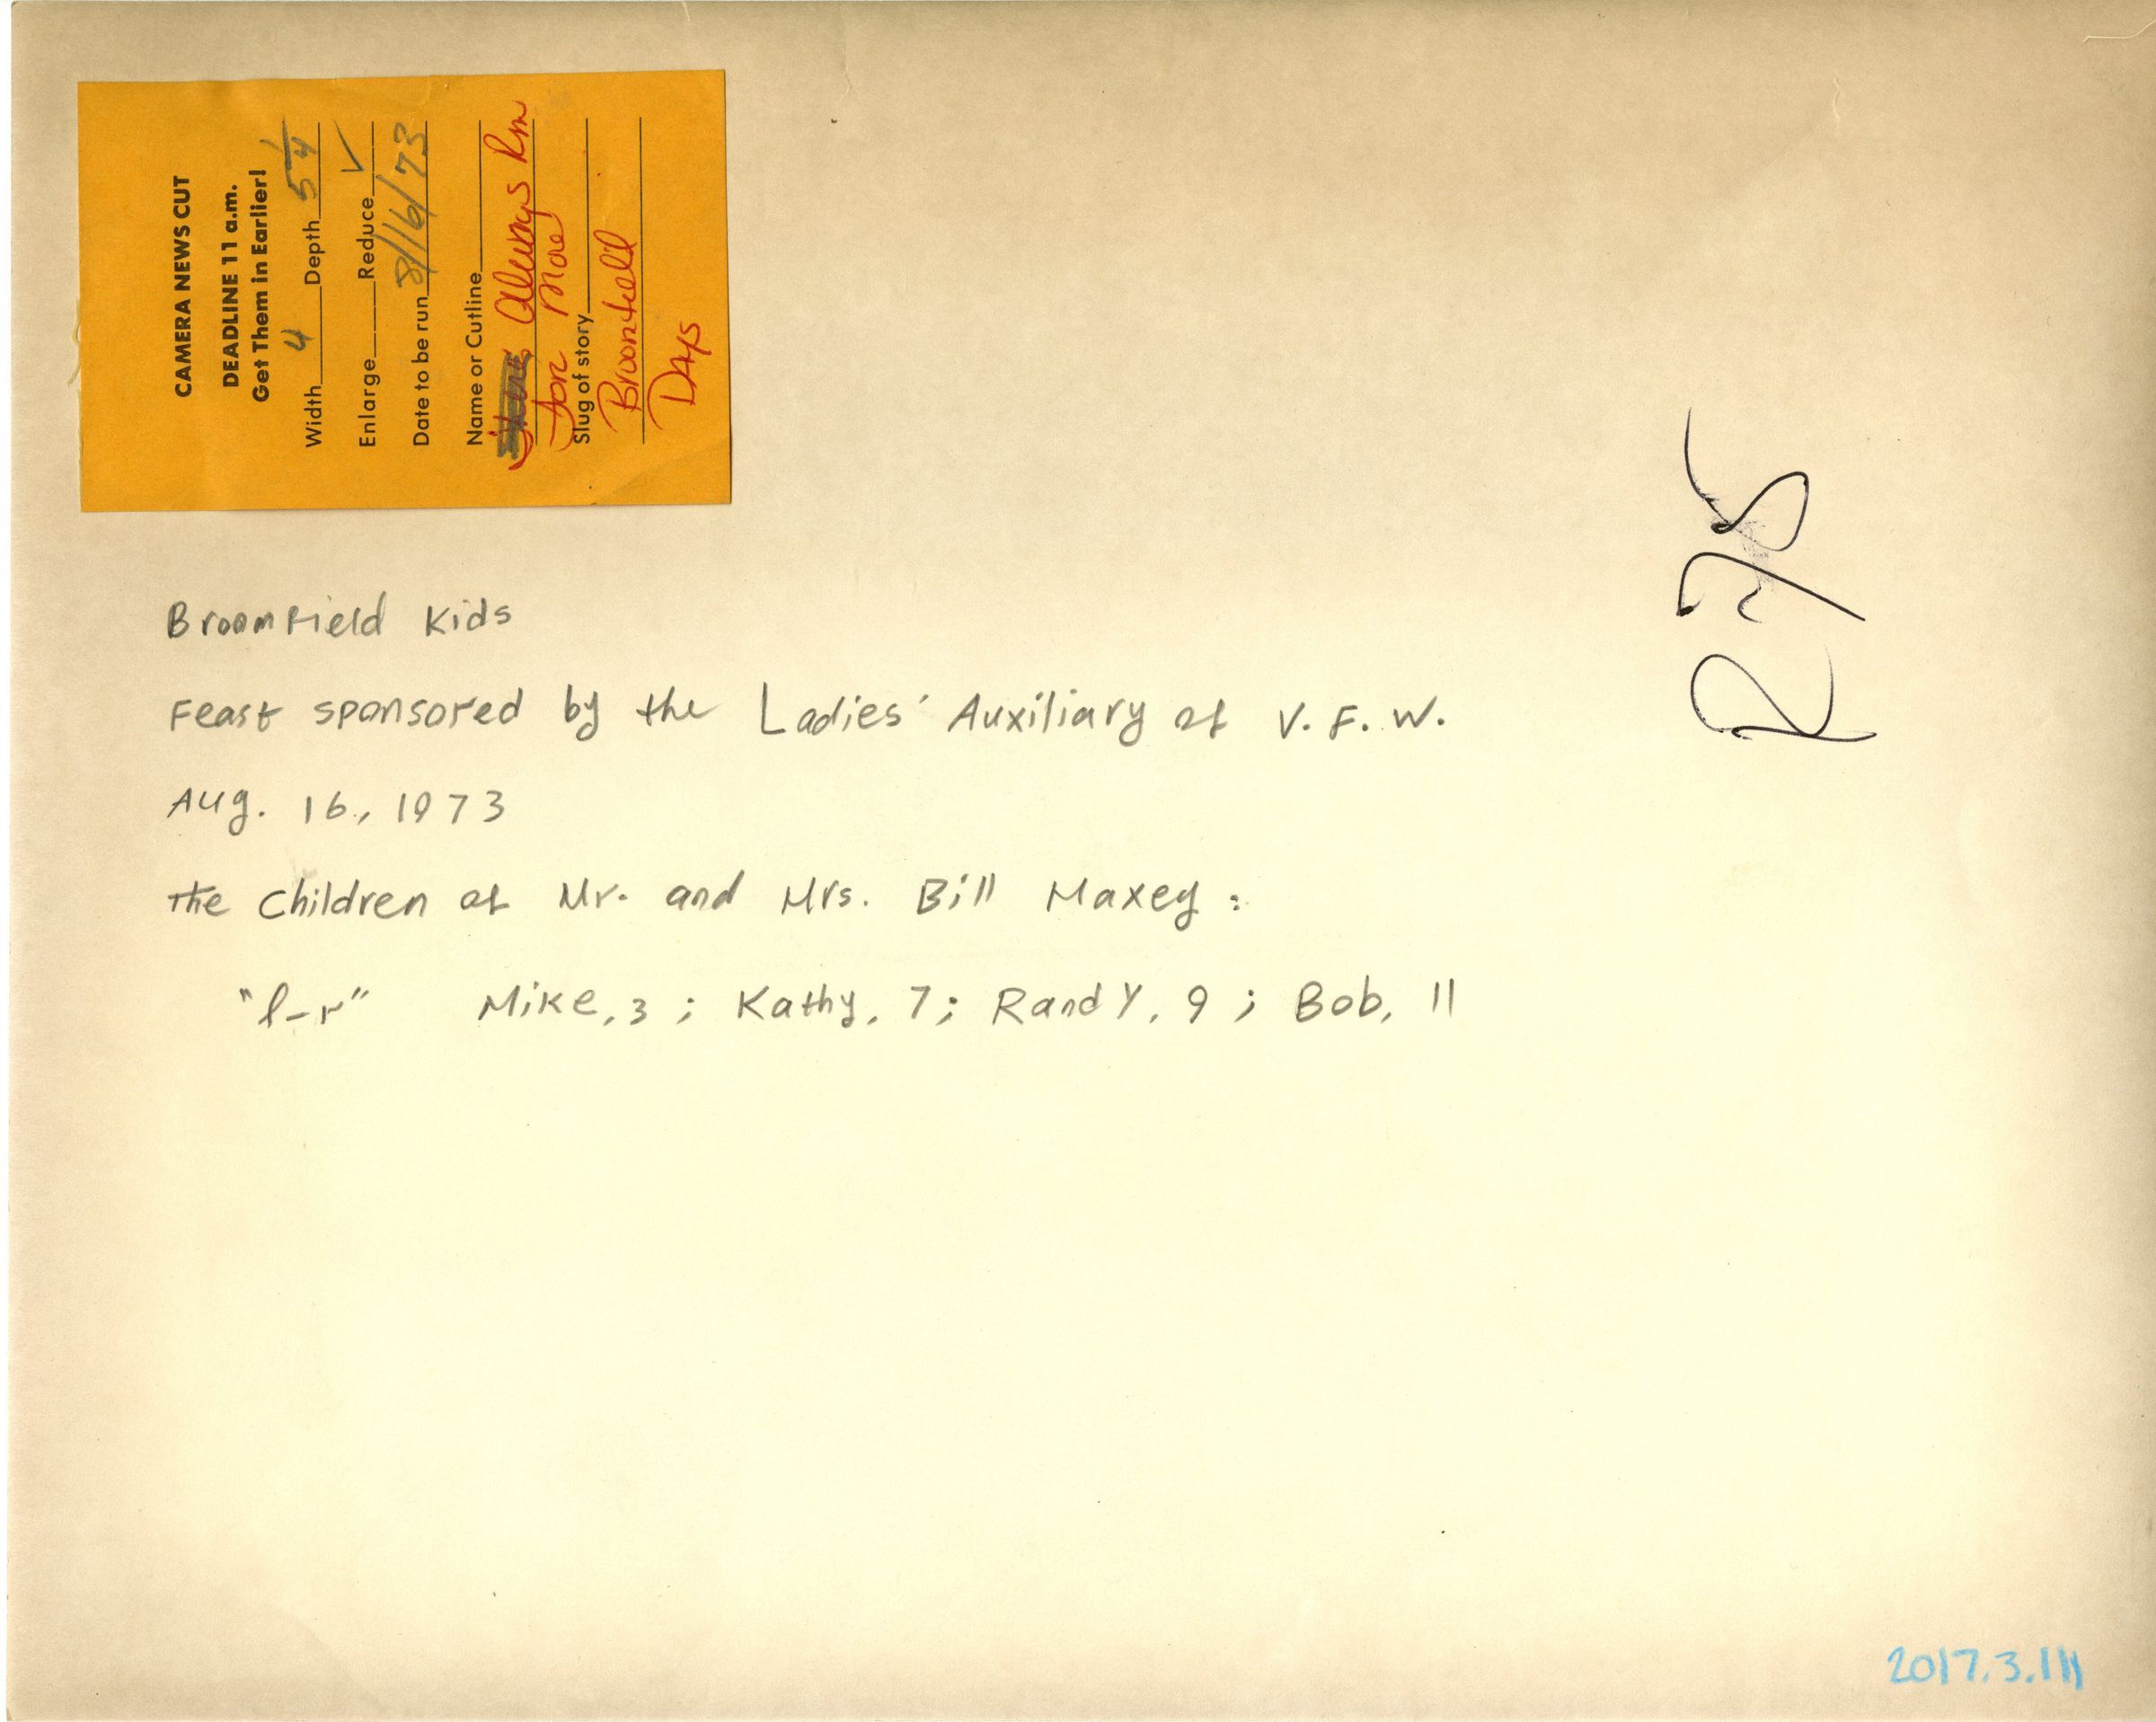 CAMERA NEWS CUT
DEADLINE 11 a.m.
Get Them in Earlier!
Width 4 Depth 5 1/4
Enlarge Reduce ✓
Date to be run 8/16/73
Name or Cutline
Always Rm
for More
Slug of story
Broomfield
Days
Broomfield Kids
Feast sponsored by the Ladies' Auxiliary of V.F.W.
Aug. 16, 1973
The Children of Mr. and Mrs. Bill Maxey:
"l-r" Mike, 3; Kathy, 7; Randy, 9; Bob, 11
2017.3.111